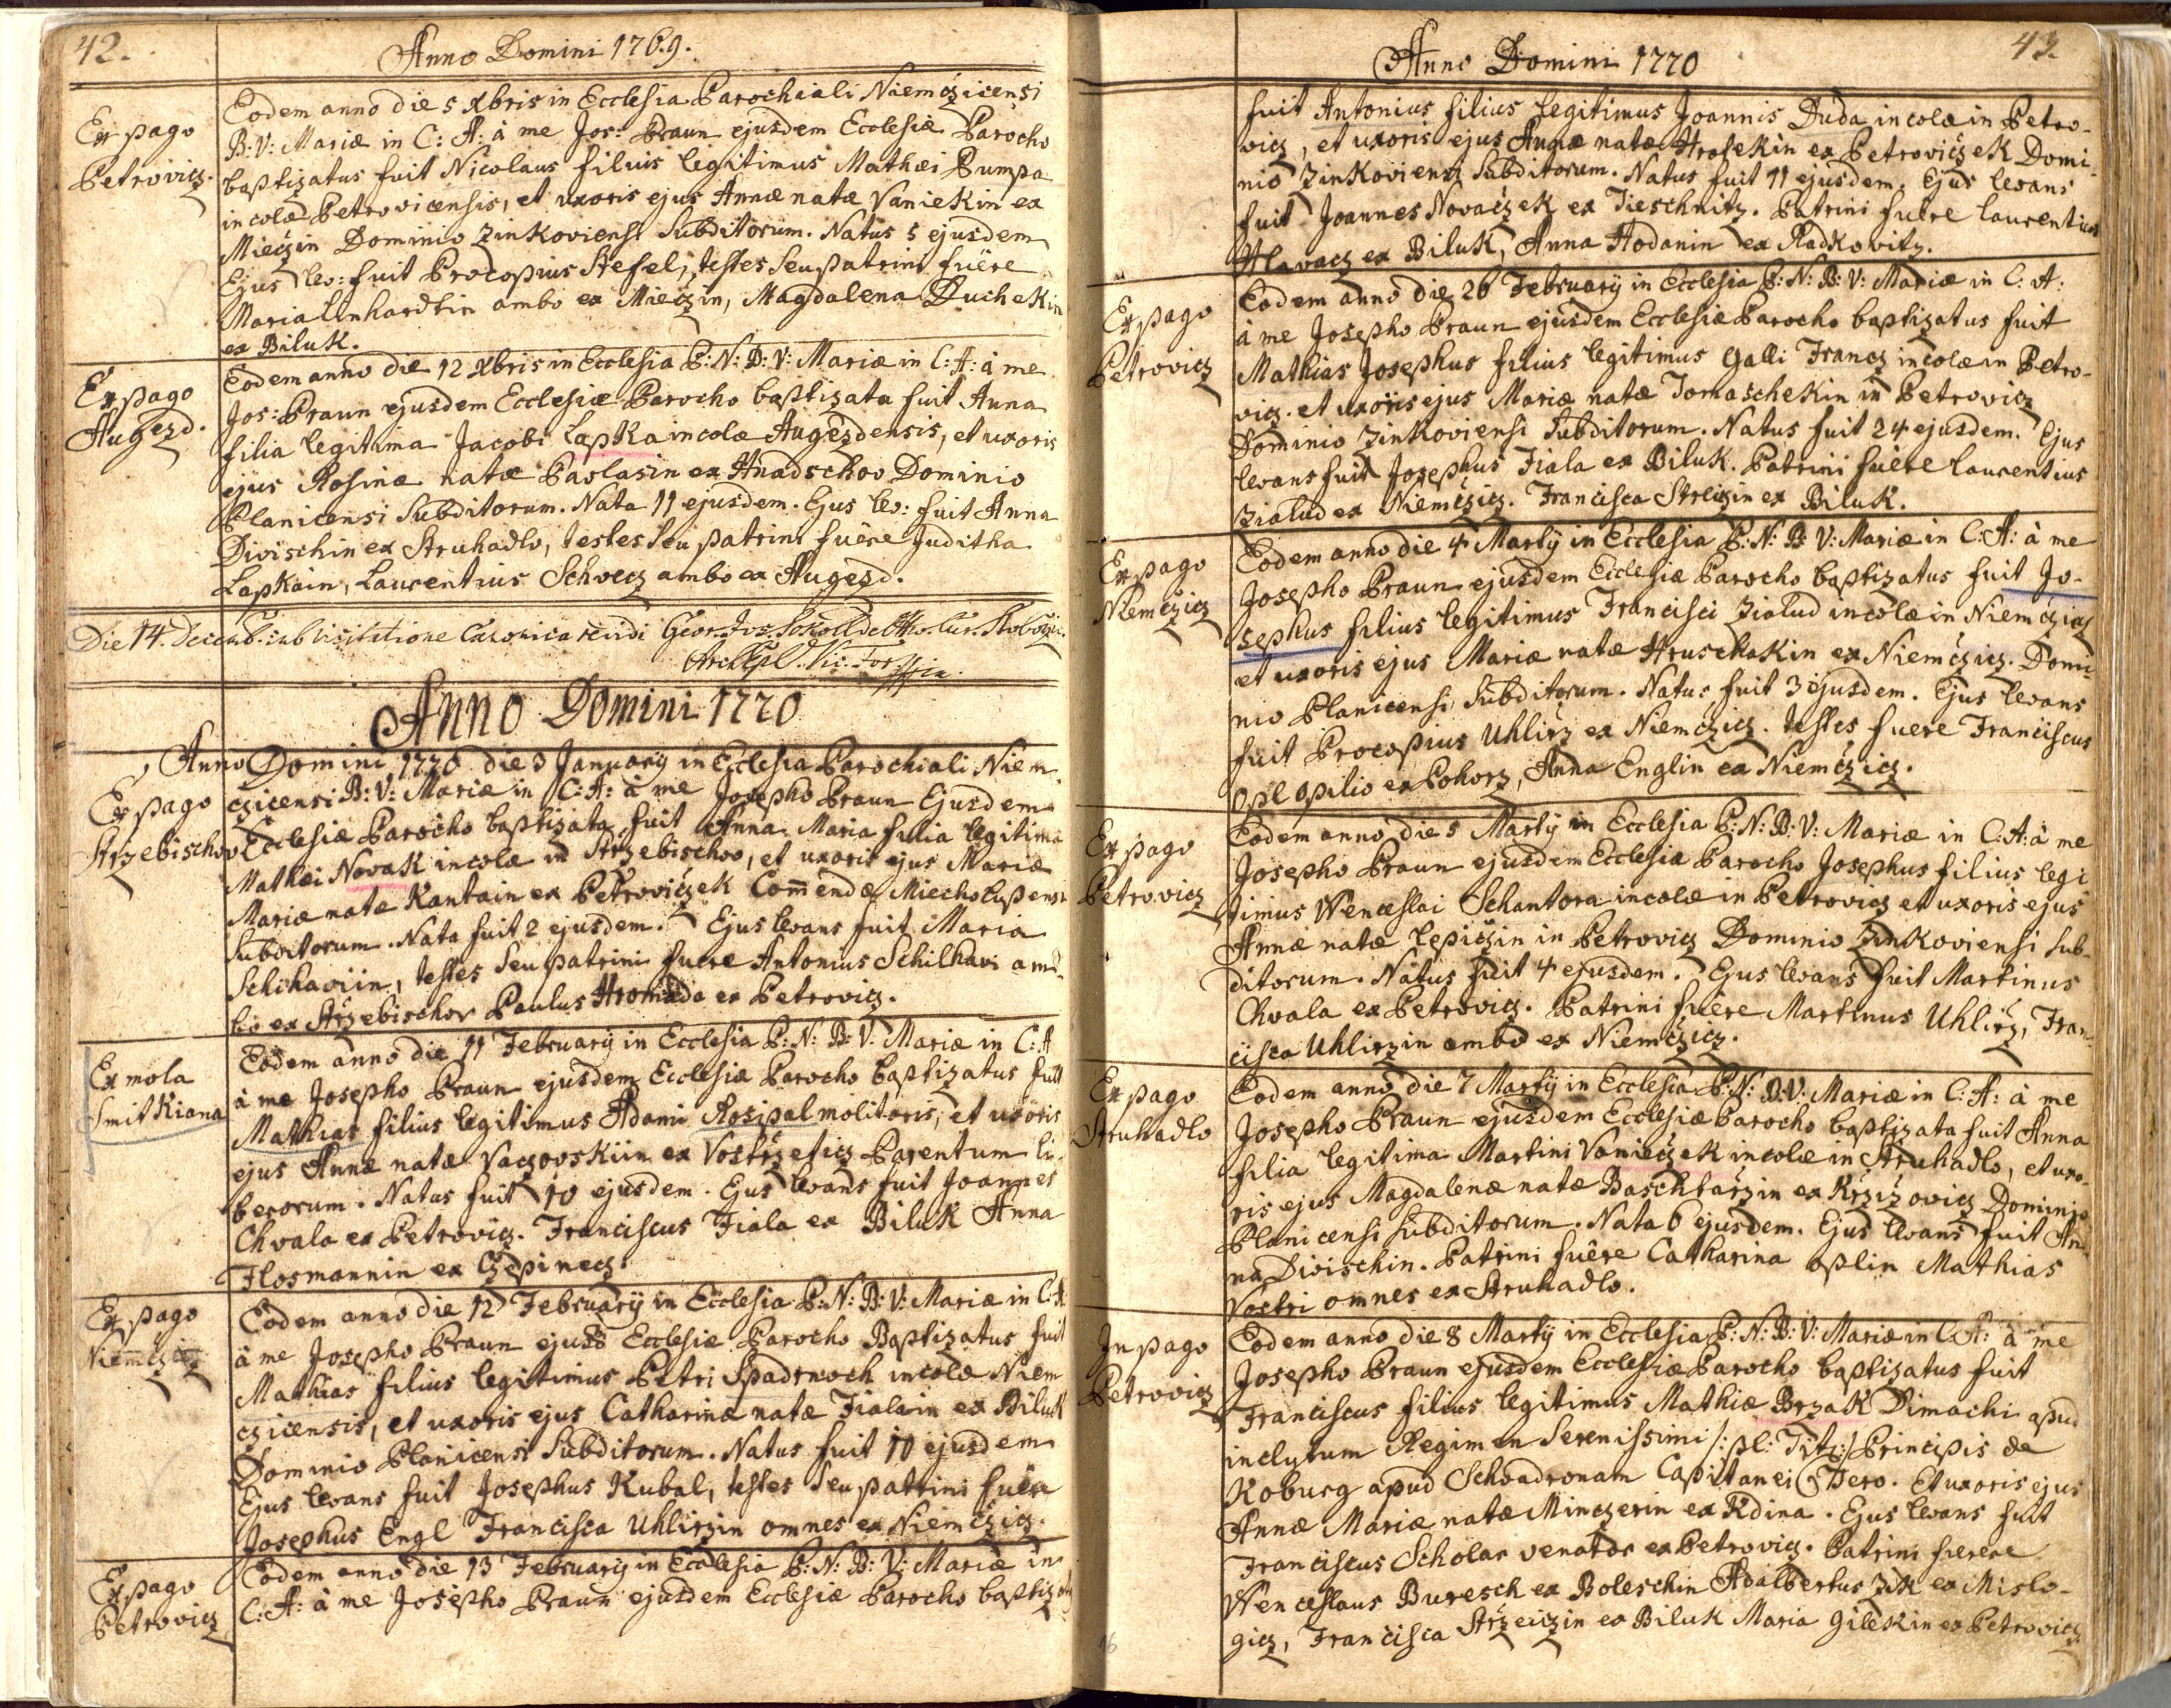 42.
Anno Domini 1769.
Ex pago
Petrovicz.
Eodem anno die 5 Xbris in Ecclesia Parochiali Niemczicensi
B: V: Mariæ in C: A: à me Jos: Braun ejusdem Ecclesiæ Parocho
baptizatus fuit Nicolaus filius legitimus Mathæi Pumpa
incolæ Petrovicensis, et uxoris ejus Annæ natæ Vaniekin ex
Mieczin Dominio Zinkoviensi Subditorum. Natus 5 ejusdem
Ejus lev: fuit Procopius Stefel, testes seu patrini fuêre
Maria Linhardtin ambo ex Mieczin, Magdalena Duchekin
ex Biluk.
Ex pago
Augezd.
Eodem anno die 12 Xbris in Ecclesia P: N: B: V: Mariæ in C: A: à me
Jos: Braun ejusdem Ecclesiæ Parocho baptizata fuit Anna
filia legitima Jacobi Lapka incolæ Augezdensis, et uxoris
ejus Rosinæ natæ Pavlasin ex Hnadschov Dominio
Planicensi Subditorum. Nata 11 ejusdem. Ejus lev: fuit Anna
Divischin ex Struhadlo, testes seu patrini fuêre Juditha
Lapkain, Laurentius Schvecz ambo ex Augezd.
Die 14. Decemb. sub visitatione Canonica revidi Geor. Jos.
Archiepl. Vic. For.
Anno Domini 1770
Anno Domini 1770 die 3 January in Ecclesia Parochiali Niem
Ex pago
Strzebischov
czicensi B: V: Mariæ in C: A: à me Josepho Braun Ejusdem
Ecclesiæ Parocho baptizata fuit Anna Maria filia legitima
Mathæi Novak incolæ in Strzebischov, et uxoris ejus Mariæ
Mariæ natæ Kantain ex Petroviczek Com̄endæ Miecholupensi
Subditorum. Nata fuit 2 ejusdem. Ejus levans fuit Maria
Schihaviin, testes seu patrini fuere Antonius Schilhavi am-
bo ex Strzebischov Paulus Hromada ex Petrovicz.
Ex mola
Smitkiana
Eodem anno die 11 February in Ecclesia P: N: B: V: Mariæ in C: A
à me Josepho Braun ejusdem Ecclesiæ Parocho baptizatus fuit
Mathias filius legitimus Adami Rosipal molitoris, et uxoris
ejus Annæ natæ Vaczovskiin ex Vostrzeticz Parentum li-
berorum. Natus fuit 10 ejusdem. Ejus levans fuit Joannes
Chvala ex Petrovicz. Franciscus Fiala ex Biluk Anna
Flosmannin ex Czepinecz.
Ex pago
Niemczicz
Eodem anno die 12 February in Ecclesia P: N: B: V: Mariæ in C: A:
à me Josepho Braun ejusd Ecclesiæ Parocho Baptizatus fuit
Mathias filius legitimus Petri Spadrnoch incolæ Niem
czicensis, et uxoris ejus Catharinæ natæ Fialain ex Biluk
Dominio Planicensi Subditorum. Natus fuit 10 ejusdem
Ejus levans fuit Josephus Kubal, testes seu patrini fuêre
Josephus Engl Francisca Uhlirzin omnes ex Niemczicz.
Ex pago
Petrovicz
Eodem anno die 13 February in Ecclesia P: N: B: V: Mariæ in
C: A: à me Josepho Braun ejusdem Ecclesiæ Parocho baptizatus
43.
Anno Domini 1770
fuit Antonius filius legitimus Joannis Duda incolæ in Petro-
vicz, et uxoris ejus Annæ natæ Hrasekin ex Petroviczek Domi-
nio Zinkoviensi Subditorum. Natus fuit 11 ejusdem. Ejus levans
fuit Joannes Novaczek ex Tieschnitz. Patrini fuêre Laurentius
Hlavacz ex Biluk, Anna Hodanin ex Radkovitz.
Ex pago
Petrovicz
Eodem anno die 26 February in Ecclesia P: N: B: V: Mariæ in C: A:
à me Josepho Braun ejusdem Ecclesiæ Parocho baptizatus fuit
Mathias Josephus filius legitimus Galli Francz incolæ in Petro-
vicz. et uxoris ejus Mariæ natæ Tomaschekin in Petrovicz
Dominio Zinkoviensi Subditorum. Natus fuit 24 ejusdem. Ejus
levans fuit Josephus Fiala ex Biluk. Patrini fuêre Laurentius
Zialud ex Niemczicz. Francisca Streiczin ex Biluk.
Ex pago
Niemczicz
Eodem anno die 4 Marty in Ecclesia P: N: B: V: Mariæ in C: A: à me
Josepho Braun ejusdem Ecclesiæ Parocho baptizatus fuit Jo-
sephus filius legitimus Francisci Zialud incolæ in Niemczicz
et uxoris ejus Mariæ natæ Hruschakin ex Niemczicz. Domi-
nio Planicensi Subditorum. Natus fuit 3 ejusdem. Ejus levans
fuit Procopius Uhlirz ex Niemczicz. testes fuere Franciscus
Opl Opilio ex Pohorz, Anna Englin ex Niemczicz.
Ex pago
Petrovicz
Eodem anno die 5 Marty in Ecclesia P: N: B: V: Mariæ in C: A: à me
Josepho Braun ejusdem Ecclesiæ Parocho Josephus filius legi
timus Wenceslai Schantora incolæ in Petrovicz et uxoris ejus
Annæ natæ Lepiczin in Petrovicz Dominio Zinkoviensi Sub-
ditorum. Natus fuit 4 ejusdem. Ejus levans fuit Martinus
Chvala ex Petrovicz. Patrini fuêre Martinus Uhlirz, Fran-
cisca Uhlirzin ambo ex Niemczicz.
Ex pago
Struhadlo
Eodem anno die 7 Marty in Ecclesia P: N: B: V: Mariæ in C: A: à me
Josepho Braun ejusdem Ecclesiæ Parocho baptizata fuit Anna
filia legitima Martini Vanieczek incolæ in Struhadlo, et uxo-
ris ejus Magdalenæ natæ Baschtarzin ex Krzizovicz Dominio
Planicensi Subditorum. Nata 6 ejusdem. Ejus levans fuit An-
na Divischin. Patrini fuêre Catharina Oplin Mathias
Vostri omnes ex Struhadlo.
In pago
Petrovicz
Eodem anno die 8 Marty in Ecclesia P: N: B: V: Mariæ in C: A: à me
Josepho Braun ejusdem Ecclesiæ Parocho baptizatus fuit
Franciscus filius legitimus Mathiæ Brzak Dimachi apud
inclytum Regimen Serenissimi /: pl: Titz :/ Principis de
Koburg apud Schvadronam Capitanei Dero. Et uxoris ejus
Annæ Mariæ natæ Minczerin ex Kdina. Ejus levans fuit
Franciscus Scholar venator ex Petrovicz. Patrini fuerere
Wenceslaus Buresch ex Boleschin Adalbertus Zik ex Mislo-
vicz, Francisca Strzeiczin ex Biluk Maria Gilekin ex Petrovicz